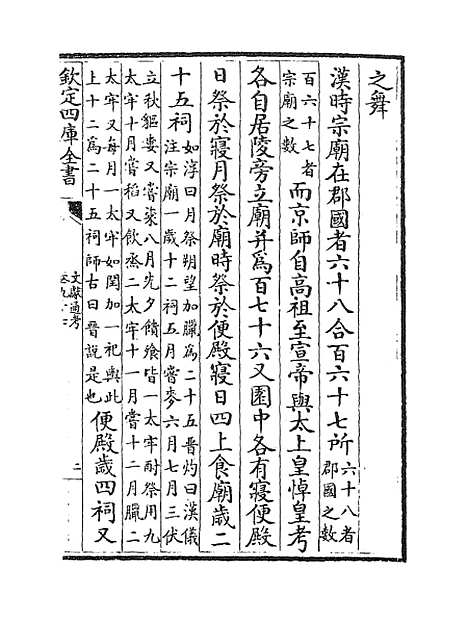 之舞
漢時宗廟在郡國者六十八合百六十七所六十八者郡國之數
百六十七者宗廟之數而京師自高祖至宣帝與太上皇悼皇考
各自居陵旁立廟并為百七十六又園中各有寢便殿
日祭於寢月祭於廟時祭於便殿寢日四上食廟歲二
十五祠如淳曰月祭朔望加臘為二十五晋灼曰漢儀注宗廟一歲十二祠五月嘗麥六月七月三伏
立秋貙婁又嘗粢八月先夕饋飱皆一太牢酎祭用九太牢十月嘗稻又飲烝二太牢十一月嘗十二月臘二
太牢又每月一太牢如閏加一祀與此上十二為二十五祠師古曰晋說是也便殿歲四祠又
欽定四庫全書
文獻通考
二